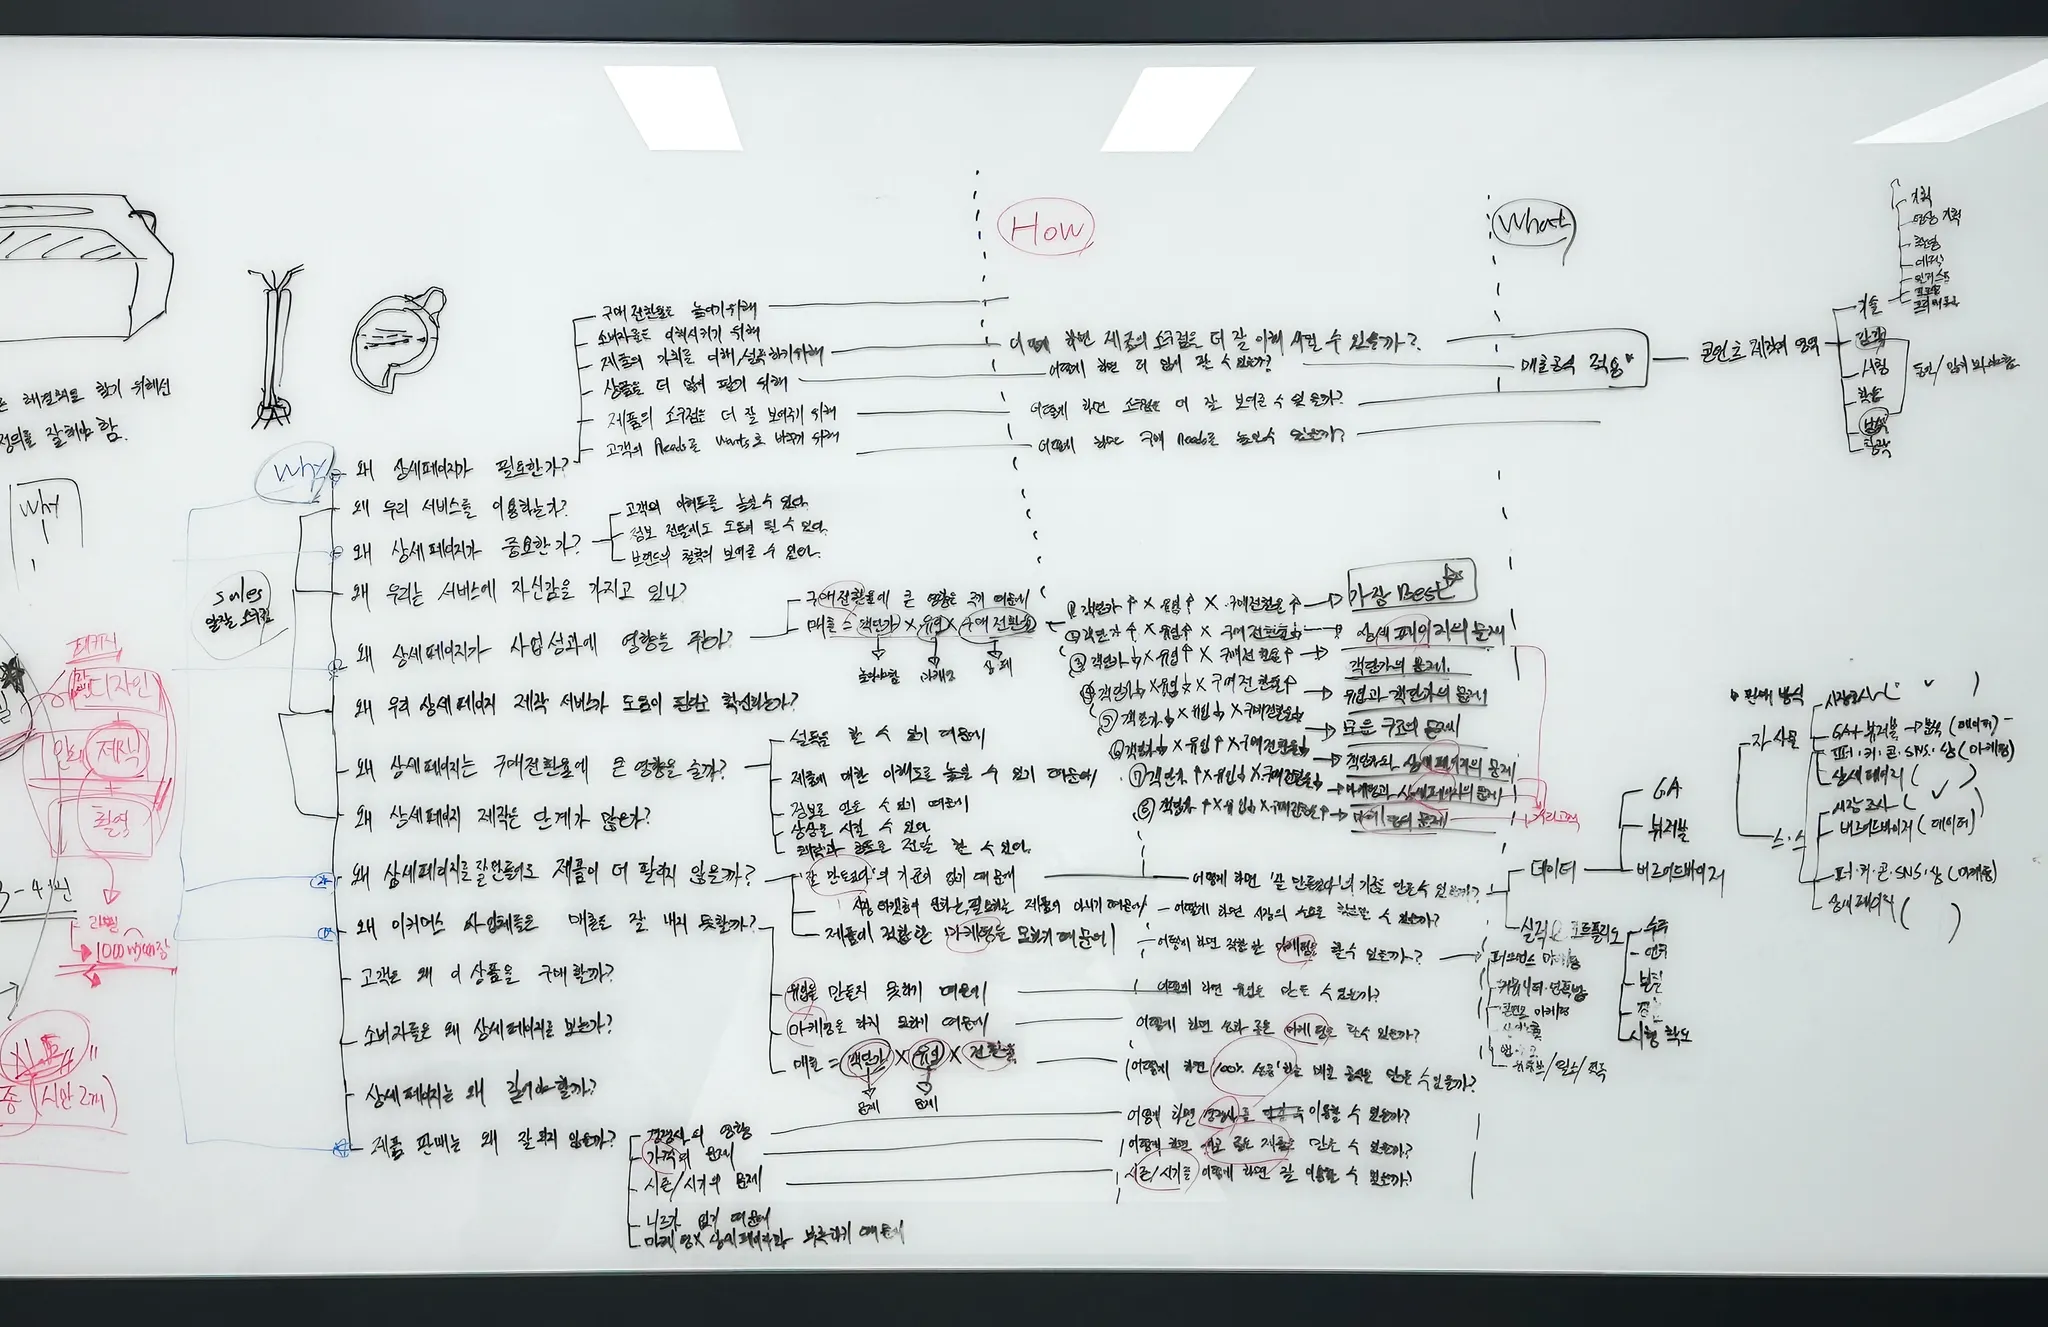 해결책을 찾기 위해선
정의를 잘해야 함.
Why
패키지
디자인
제작
촬영
3-4
1000
시안 2개)
sales
Why
왜 상세페이지가 필요한가?
구매 전환율을 높이기 위해
소비자를 이해시키기 위해
제품의 가치를 더 이해/설득하기 위해
상품을 더 많이 팔기 위해
제품의 소구점을 더 잘 보여주기 위해
고객의 Needs를 Wants로 바꾸기 위해
왜 우리 서비스를 이용하는가?
왜 상세페이지가 중요한가?
고객의 이해도를 높일 수 있다.
정보 전달에도 도움이 될 수 있다.
브랜드의 철학의 보여줄 수 있다.
왜 우리는 서비스에 자신감을 가지고 있나?
왜 상세페이지가 사업성과에 영향을 주나?
구매전환율에 큰 영향을 주기 때문에
매출 = 객단가 X 유입 X 구매 전환율
마케팅
상페
왜 우리 상세페이지 제작 서비스가 도움이 된다고 확신하는가?
왜 상세페이지는 구매전환율에 큰 영향을 줄까?
설득을 할 수 있기 때문에
제품에 대한 이해도를 높일 수 있기 때문에
정보를 얻을 수 있기 때문에
상상을 시킬 수 있다.
전달 할 수 있다.
왜 상세페이지 제작은 단계가 많은가?
왜 상세페이지를 잘 만들어도 제품이 더 팔리지 않을까?
'잘 만들었다'의 기준이 없기 때문에
제품이 아니기 때문에
왜 이커머스 사업체들은 매출을 잘 내지 못할까?
제품에 적합한 마케팅을 못하기 때문에
유입을 만들지 못하기 때문에
마케팅을 하지 못하기 때문에
매출 = 객단가 X 유입 X 전환율
문제
문제
고객은 왜 이 상품을 구매할까?
소비자들은 왜 상세페이지를 보는가?
상세페이지는 왜 길어야 할까?
제품 판매는 왜 잘 되지 않을까?
경쟁사의 영향
가격의 문제
시즌/시기의 문제
니즈가 없기 때문에
마케팅X 상세페이지가 부족하기 때문에
How
어떻게 하면 제품의 소구점을 더 잘 이해 시킬 수 있을까?
어떻게 하면 더 많이 팔 수 있을까?
어떻게 하면 소구점을 더 잘 보여줄 수 있을까?
어떻게 하면 구매 Needs를 높일 수 있을까?
① 객단가↑ X 유입↑ X 구매전환율↑ → 가장 Best
② 객단가↑ X 유입↑ X 구매전환율↓ → 상세페이지의 문제
③ 객단가↓ X 유입↑ X 구매전환율↑ → 객단가의 문제.
④ 객단가↓ X 유입↓ X 구매전환율↑ → 유입과 객단가의 문제
⑤ 객단가↓ X 유입↓ X 구매전환율↓ → 모든 구조의 문제
⑥ 객단가↓ X 유입↑ X 구매전환율↓ → 객단가와 상세페이지의 문제
⑦ 객단가↑ X 유입↓ X 구매전환율↓ → 마케팅과 상세페이지의 문제
⑧ 객단가↑ X 유입↓ X 구매전환율↑ → 마케팅의 문제
어떻게 하면 '잘 만들었다'의 기준을 만들 수 있을까?
어떻게 하면 시장의 수요를 확인할 수 있을까?
어떻게 하면 적합한 마케팅을 할 수 있을까?
어떻게 하면 유입을 만들 수 있을까?
어떻게 하면 성과 좋은 마케팅을 할 수 있을까?
어떻게 하면 100% 매출 공식을 만들 수 있을까?
어떻게 하면 경쟁사를 이용할 수 있을까?
어떻게 하면 제품을 만들 수 있을까?
시즌/시기를 어떻게 하면 잘 이용할 수 있을까?
What
매출공식 적용
콘텐츠 제작의 영역
기술
감각
시청
학습
기획
영상 기획
촬영
데이터
GA
뷰저블
비즈어드바이저
실력 포트폴리오
퍼포먼스 마케팅
콘텐츠 마케팅
판매 방식
자사몰
시장조사 ( ✓ )
GA+뷰저블→분석 (데이터)
퍼·커·콘·SNS·상 (마케팅)
상세페이지 ( ✓ )
스·스
시장 조사 ( ✓ )
비즈어드바이저 (데이터)
퍼·커·콘·SNS·상 (마케팅)
상세페이지 ( )